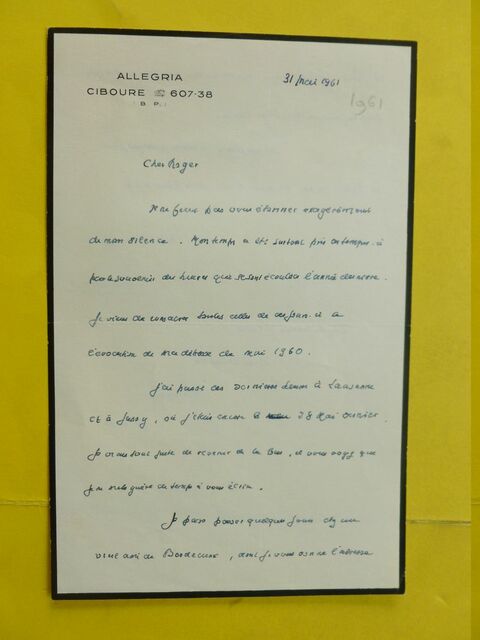 ALLEGRIA
CIBOURE ☏ 607-38
(B. P.)
31 mai 1961
1961
Cher Roger
Il ne faut pas vous étonner exagérément
de mon silence. Mon temps a été surtout pris ces temps-ci
par le souvenir des heures qui se sont écoulées l'année dernière.
Je viens de consacrer toutes celles de ces jours-ci à
l'évocation de ma du mai 1960.
J'ai passé ces dernières heures à Lausanne
et à Jussy, où j'étais encore le 28 Mai dernier.
Je suis tout juste de retour de là-bas, et vous voyez que
je n'ai guère de temps à vous écrire.
Je pars passer quelques jours chez un
vieil ami de Bordeaux, dont je vous donne l'adresse